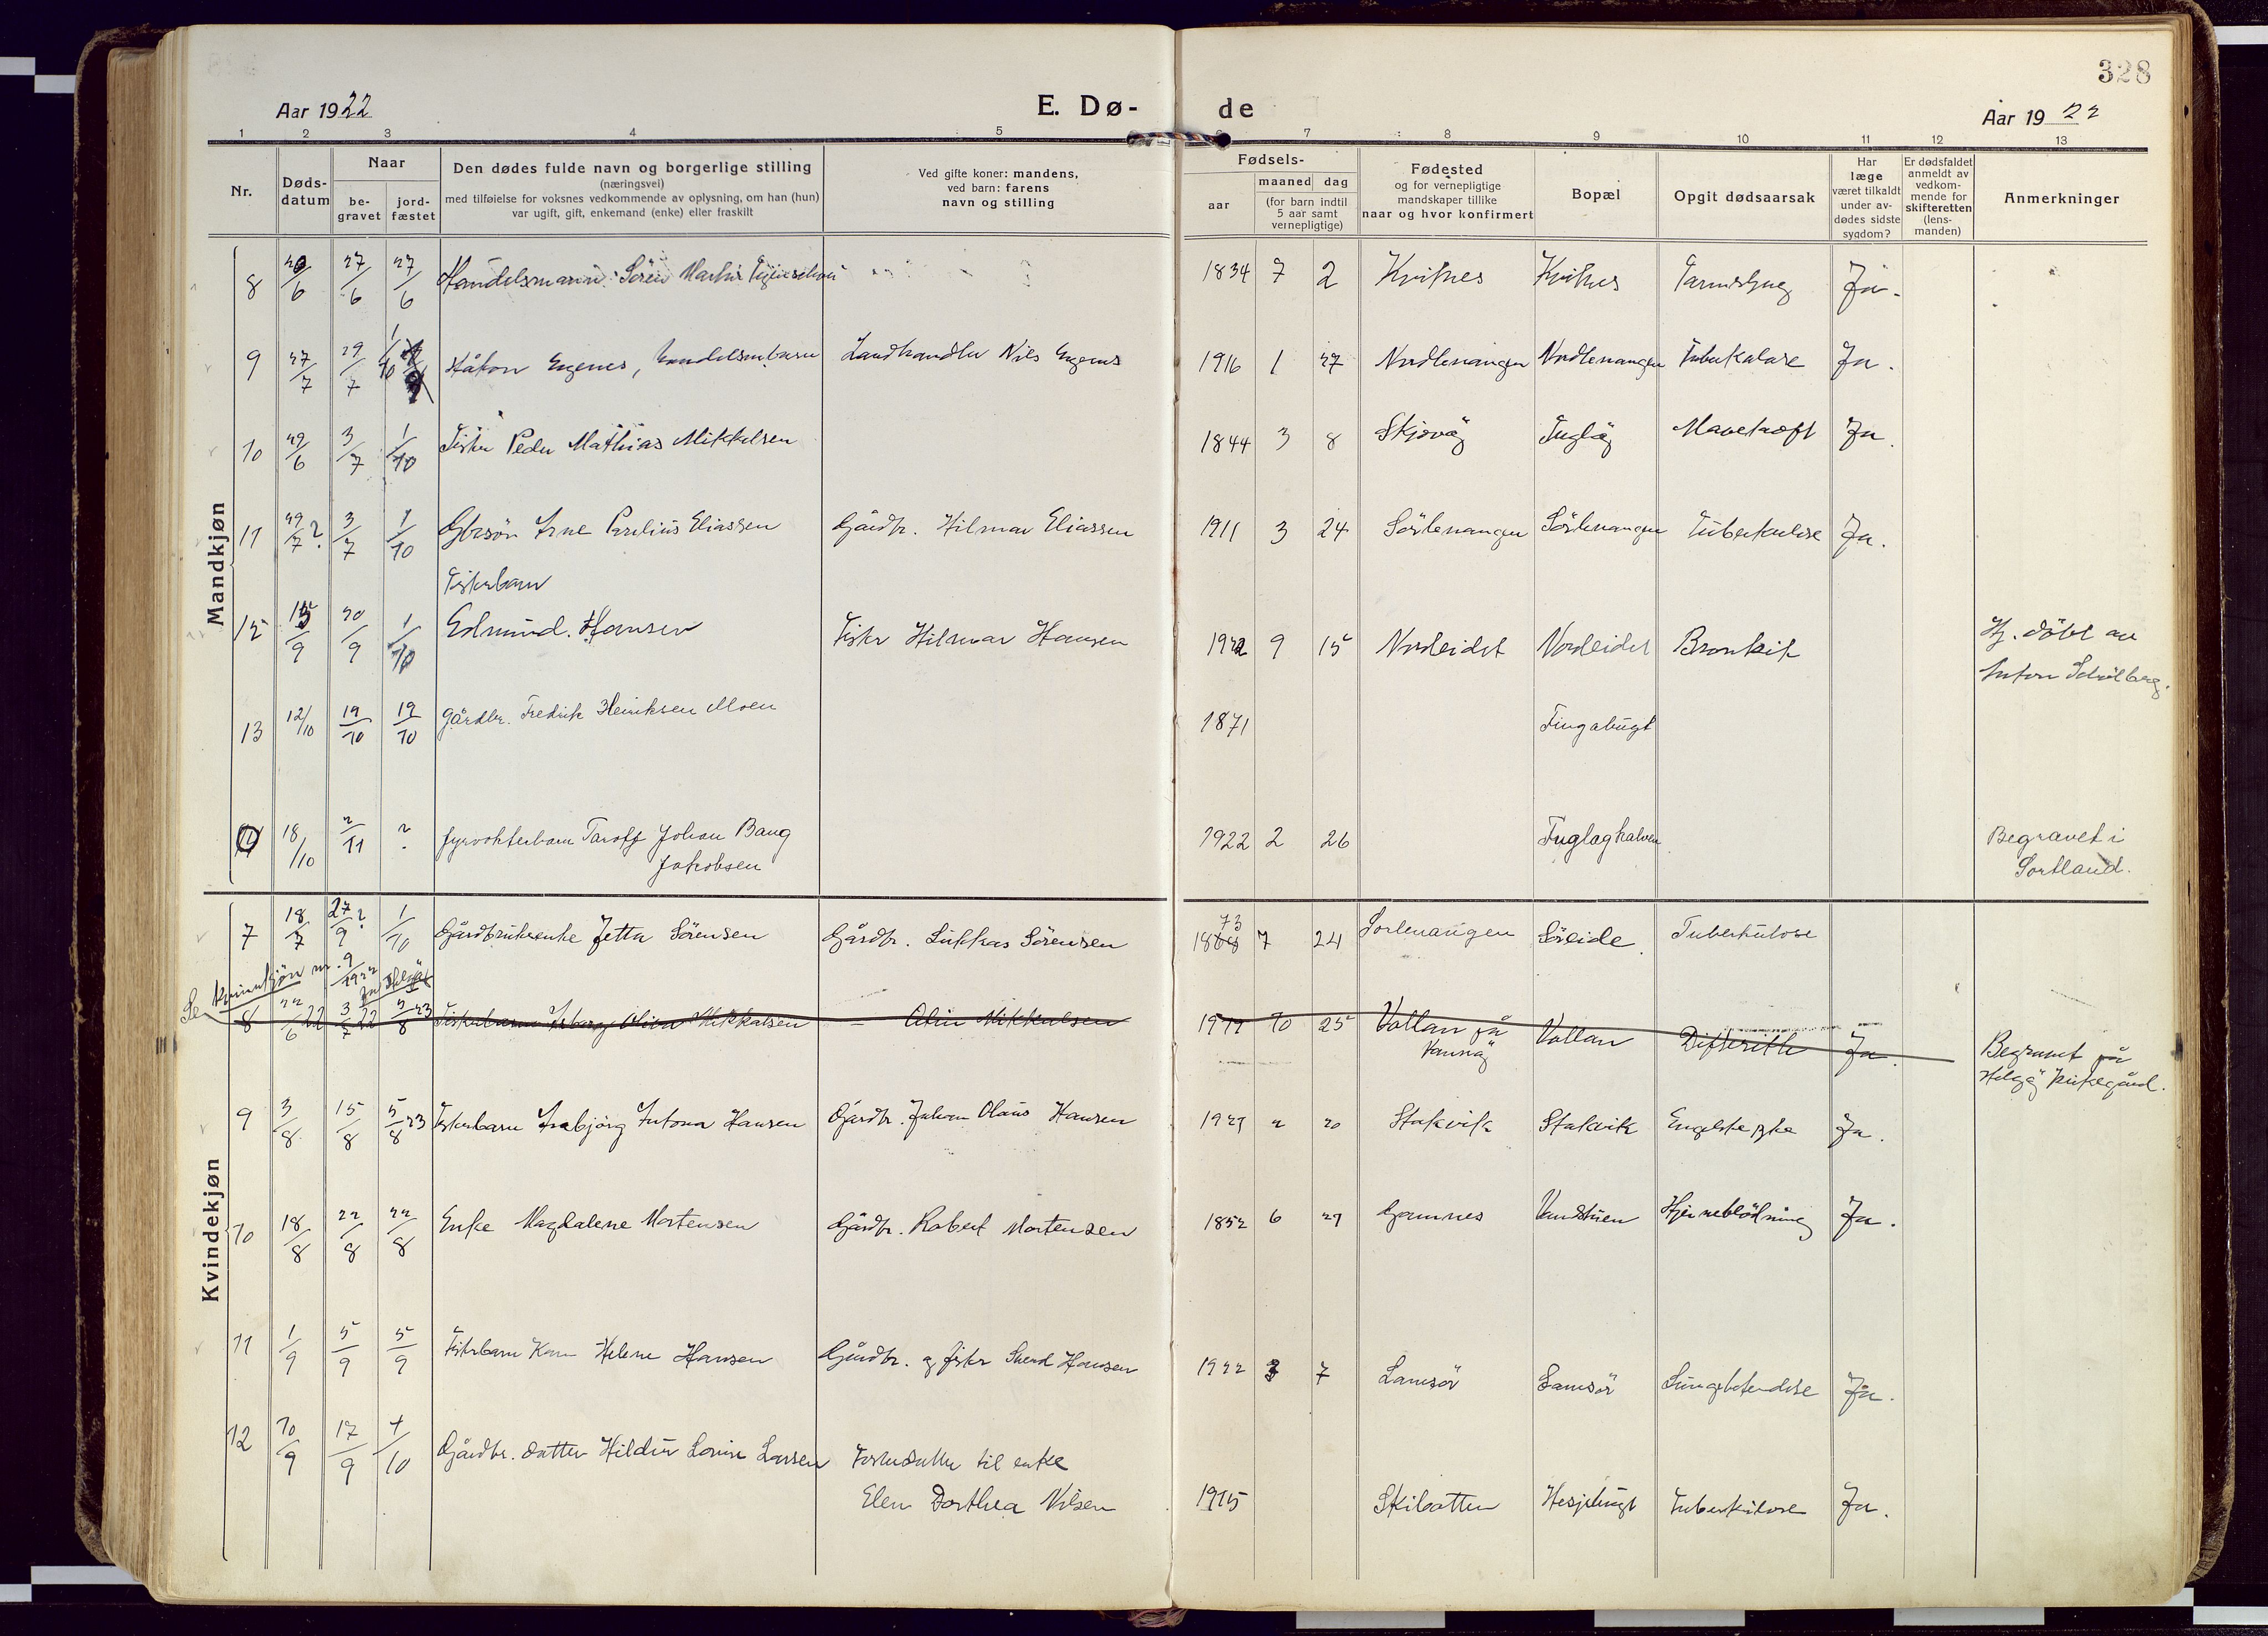 328
Aar 1922
E. Dø-
de
Aar 1922
1 2 3 4 5 6 7 8 9 10 11 12 13
Nr.
Døds-
datum
Naar
be-
gravet
jord-
fæstet
Den dødes fulde navn og borgerlige stilling
(næringsvei)
med tilføielse for voksnes vedkommende av oplysning, om han (hun)
var ugift, gift, enkemand (enke) eller fraskilt
Ved gifte koner: mandens,
ved barn: farens
navn og stilling
Fødsels-
aar
maaned dag
(for barn indtil
5 aar samt
vernepligtige)
Fødested
og for vernepligtige
mandskaper tillike
naar og hvor konfirmert
Bopæl
Opgit dødsaarsak
Har
læge
været tilkaldt
under av-
dødes sidste
sygdom?
Er dødsfaldet
anmeldt av
vedkom-
mende for
skifteretten
(lens-
manden)
Anmerkninger
Mandkjøn
8 27/6 27/6 Handelsmann Sören Martin 1834 7 2 Kvitnes Kvitnes Ja.
9 27/7 29/7 Håkon Engenes, handelsmbarn Landhandler Nils Engenes 1916 1 27 Nordlenangen Nordlenangen Tuberkulose Ja.
10 29/6 3/7 1/10 Fisker Peder Mathias Mikkelsen 1844 3 8 Skjovåg Fuglöy Mavekræft Ja.
11 29/7? 3/7 1/10 Gbrsön Arne Eliassen Gårdbr. Hilmar Eliassen 1911 3 24 Sörlenangen Sörlenangen Tuberkulose Ja.
Fiskerbarn
12 15/9 20/9 1/10 Edmund. Hansen Fisker Hilmar Hansen 1922 9 15 Nordeidet Nordeidet Bronkit Hj. döbt av
Anton
13 12/10 19/10 19/10 Gårdbr. Fredrik Henriksen Moen 1871 Tingabugt
14 18/10 2/11 ? Fyrvokterbarn Taroff Johan Bang
Jakobsen
1922 2 26 Fuglöykalven Begravet i
Sortland.
Kvindekjøn
7 18/7 27/9? 1/10 Gårdbrukerenke Jetta Sörensen Gårdbr. Lukkas Sörensen 1868 73 7 24 Sörlenangen Söreide. Tuberkulose
Se kvinnekjøn nr. 9/1922
8 22/6 22 3/7 22 5/8 23 Fiskerbarn Olivia Mikkalsen – Alin Mikkalsen 1919 10 25 Vallan på
Vannöy
Vallan Difterith Ja. Begravet på
Helgöy kirkegård.
9 3/8 15/8 5/8 23 Fiskerbarn Antona Hansen Gårdbr. Johan Olaus Hansen 1921 2 20 Stakvik Stakvik Engelske syke Ja.
10 18/8 22/8 22/8 Enke Magdalene Mortensen Gårdbr. Robert Mortensen 1852 6 29 Gamnes Vandstuen Hjerneblödning Ja.
11 1/9 5/9 5/9 Fiskerbarn Karen Helene Hansen Gårdbr. og fisker Hansen 1922 3 7 Lamsör Lamsör Lungebetendelse Ja.
12 10/9 17/9 1/10 Gårdbr. datter Hildur Lovise Larsen Fosterdatter til enke
Elen Dorthea Nilsen
1915 Skibotten Hesjebugt Tuberkulose Ja.